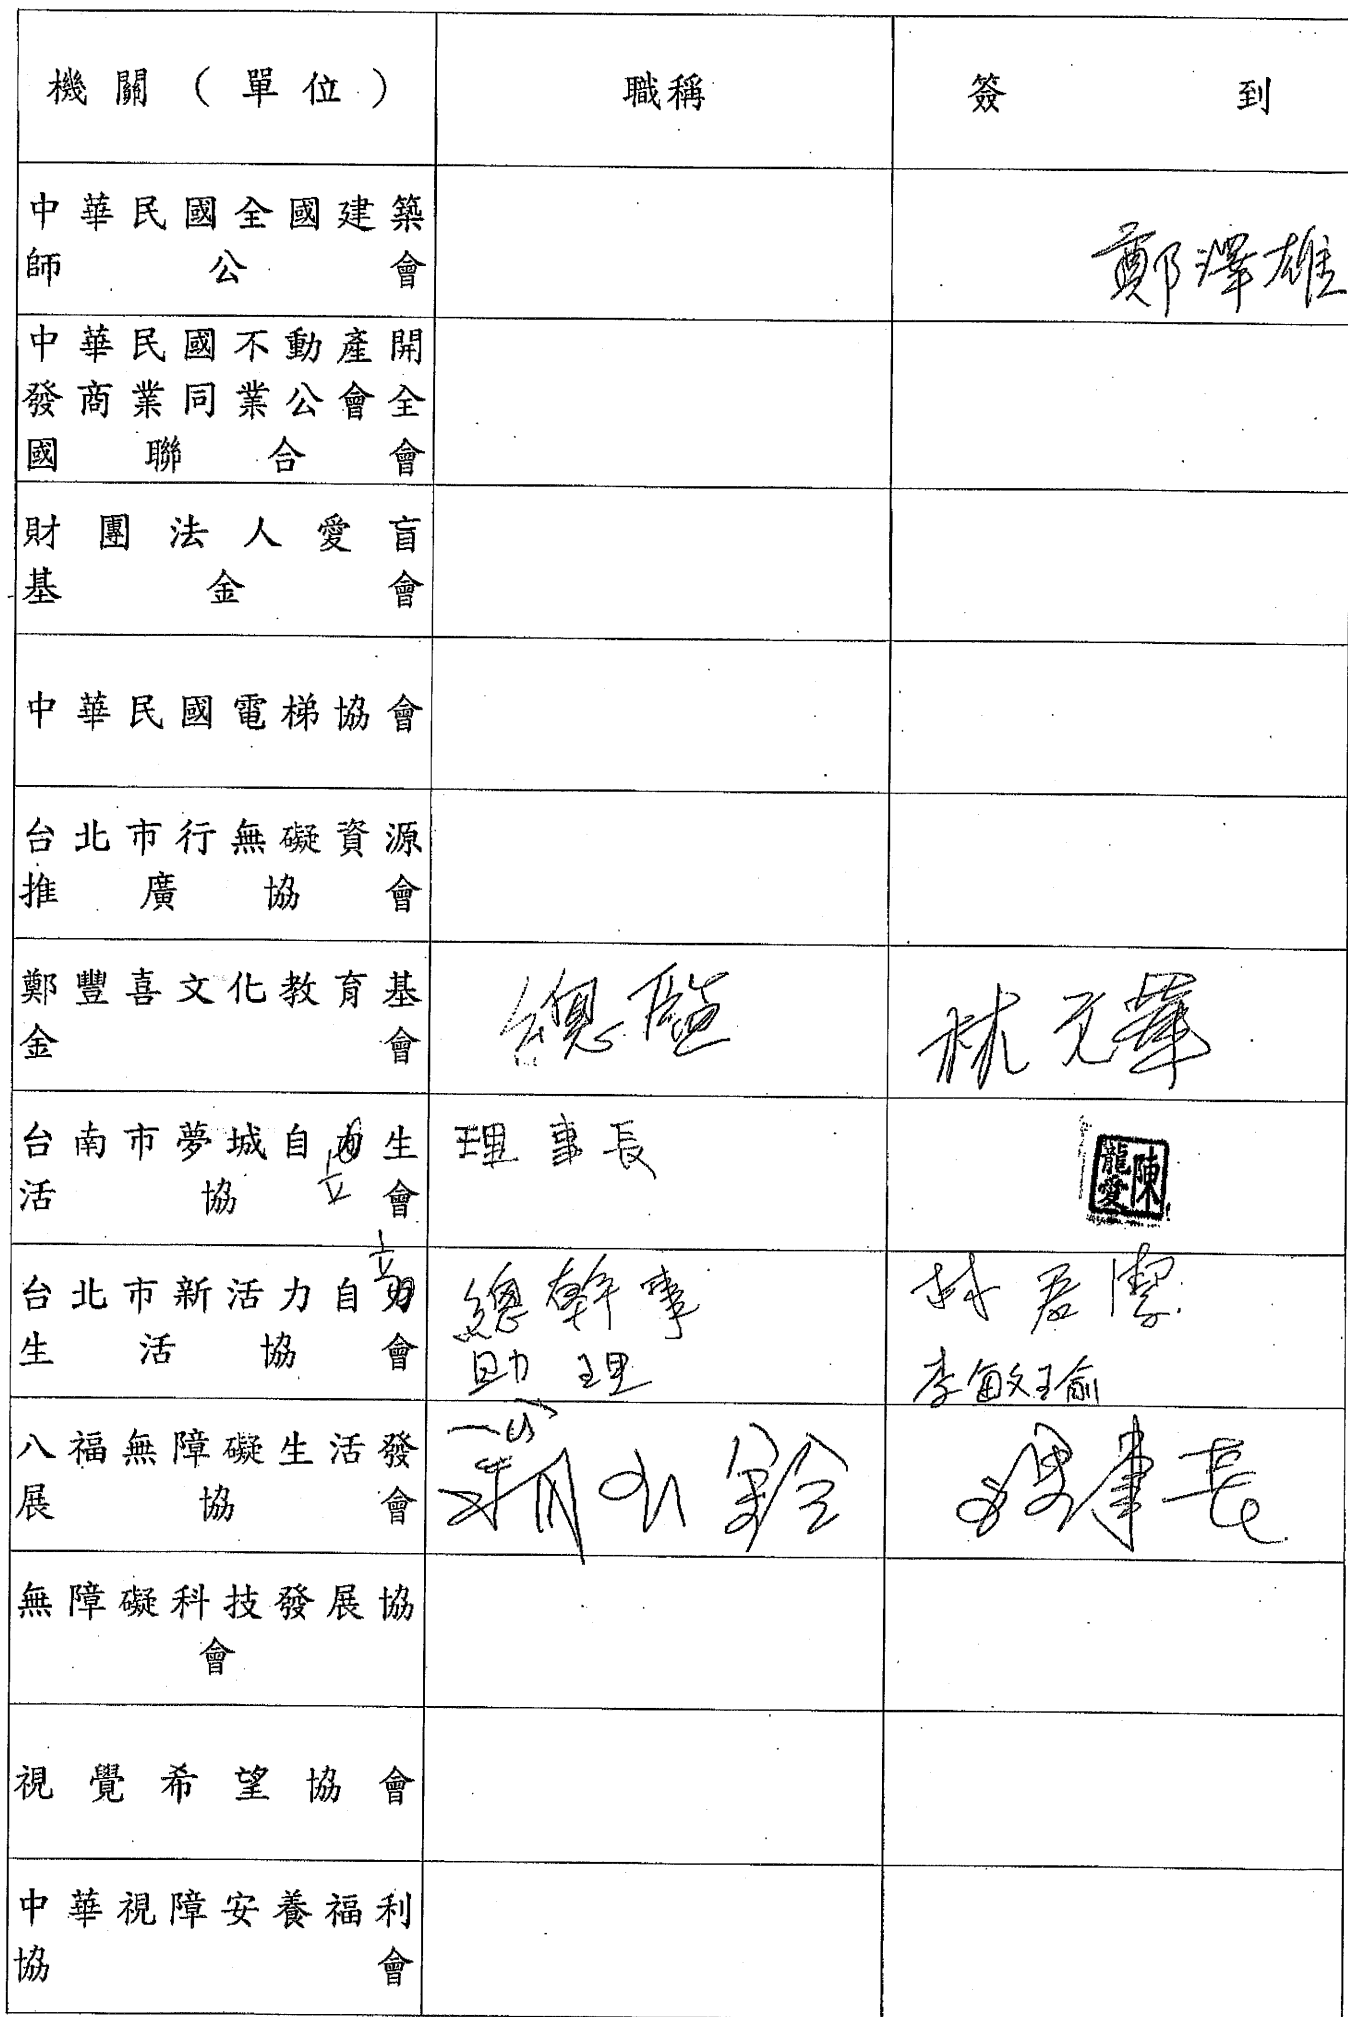 機關（單位）
職稱
簽到
中華民國全國建築
師公會
鄭澤雄
中華民國不動產開
發商業同業公會全
國聯合會
財團法人愛盲
基金會
中華民國電梯協會
台北市行無礙資源
推廣協會
鄭豐喜文化教育基
金會
總監
林元華
台南市夢城自力生
立
活協會
理事長
陳龍愛
立
台北市新活力自力
生活協會
總幹事
林君潔
助理
李敏瑜
八福無障礙生活發
展協會
無障礙科技發展協
會
視覺希望協會
中華視障安養福利
協會